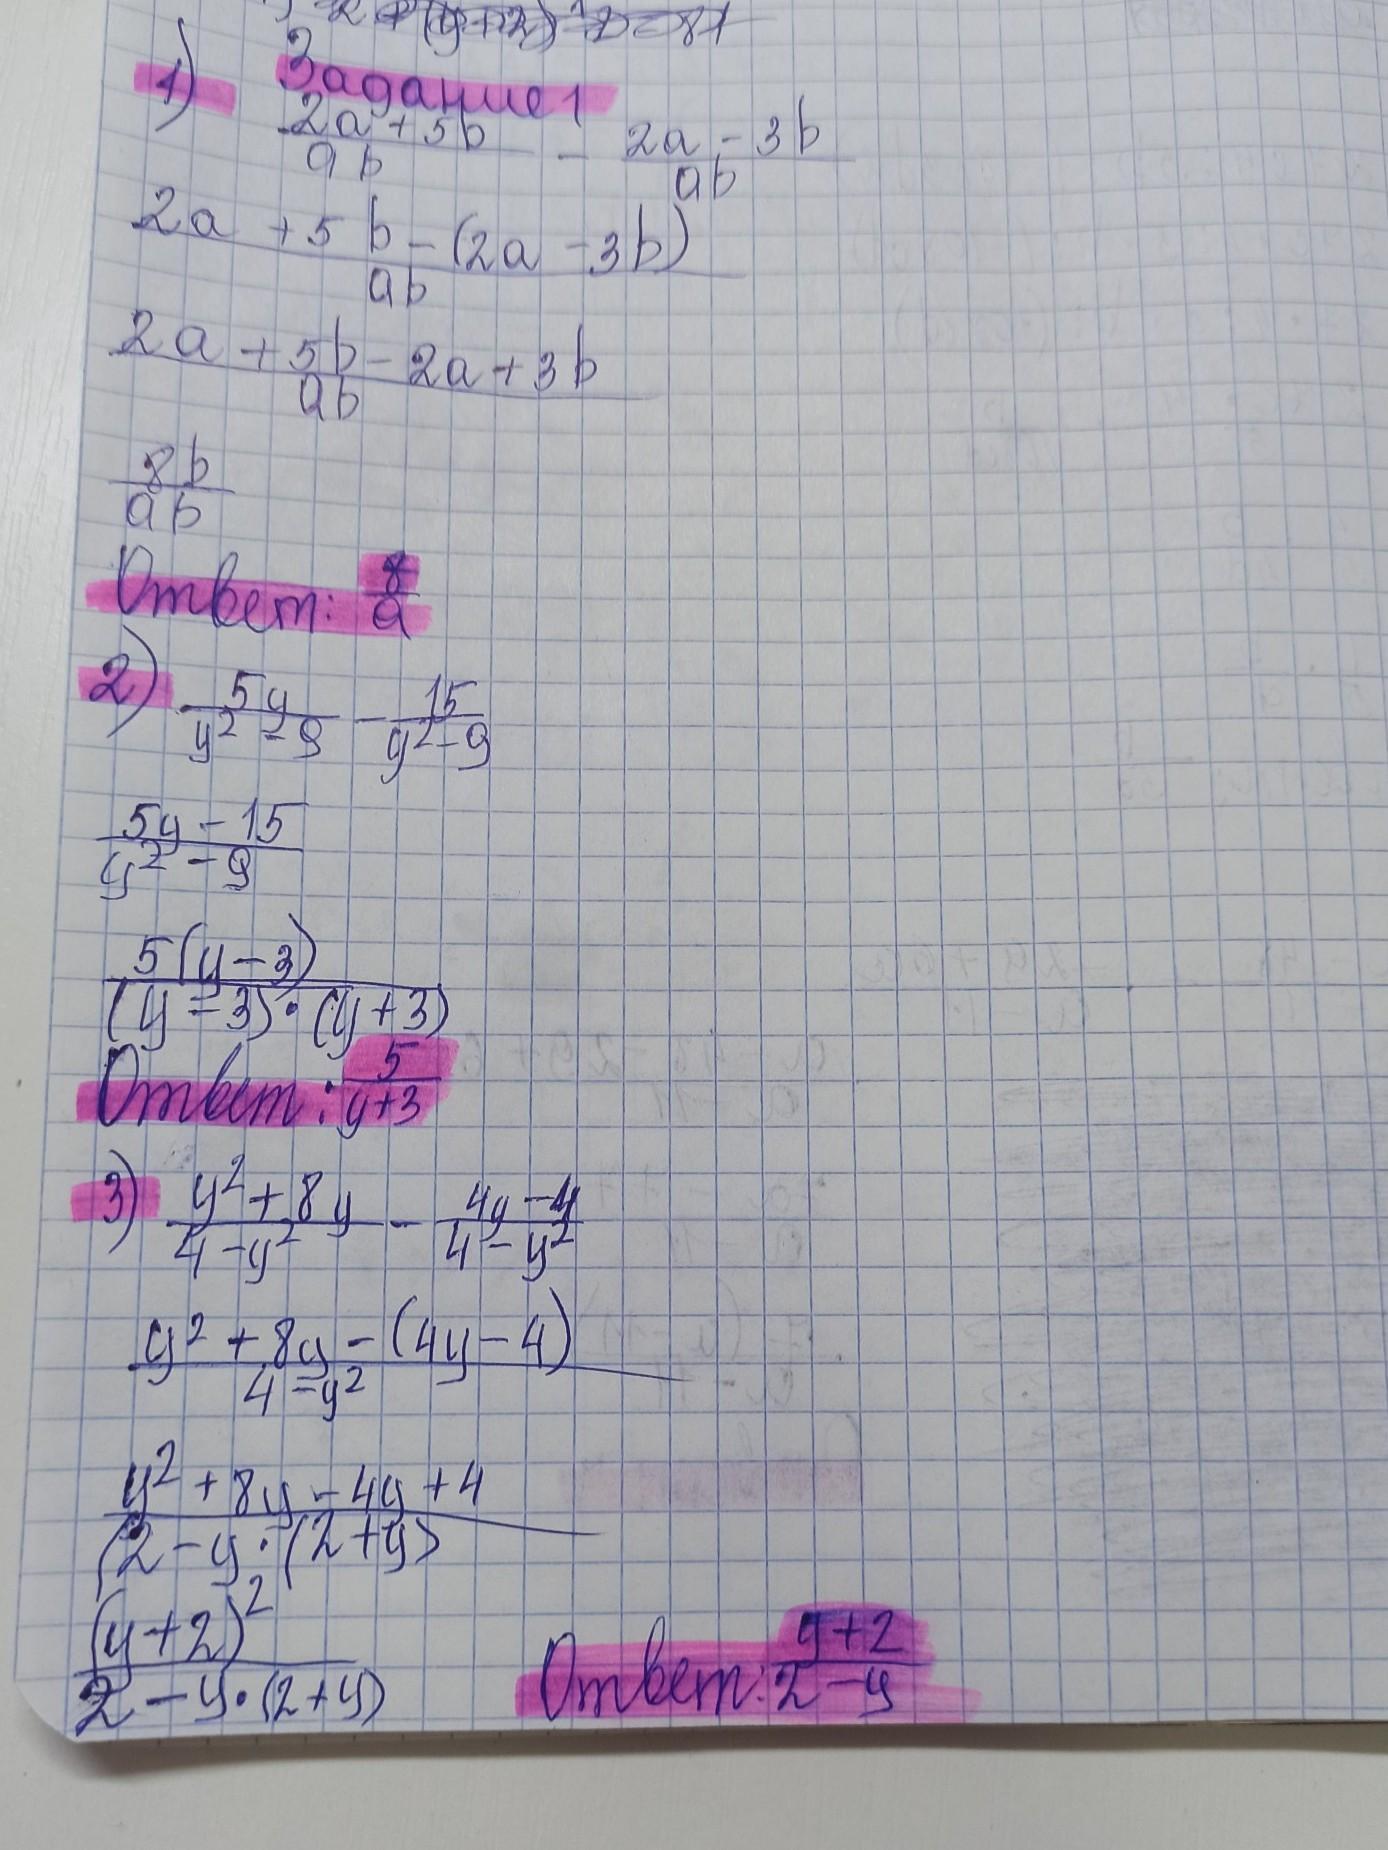 Задание 1
1) (2a + 5b)/(ab) - (2a - 3b)/(ab)
(2a + 5b - (2a - 3b))/(ab)
(2a + 5b - 2a + 3b)/(ab)
8b/(ab)
Ответ: 8/a
2) 5y/(y² - 9) - 15/(y² - 9)
(5y - 15)/(y² - 9)
5(y - 3)/((y - 3)·(y + 3))
Ответ: 5/(y+3)
3) (y² + 8y)/(4 - y²) - (4y - 4)/(4 - y²)
(y² + 8y - (4y - 4))/(4 - y²)
(y² + 8y - 4y + 4)/(2 - y·(2 + y)
(y+2)²/2 - y·(2+y)
Ответ: (y+2)/(2-y)